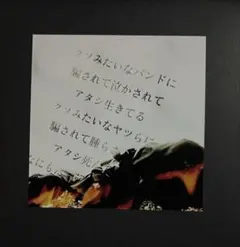 クソみたいなバンドに
騙されて泣かされて
アタシ生きてる
クソみたいなヤツらに
騙されて腫らさ
アタシ死ん
なにも